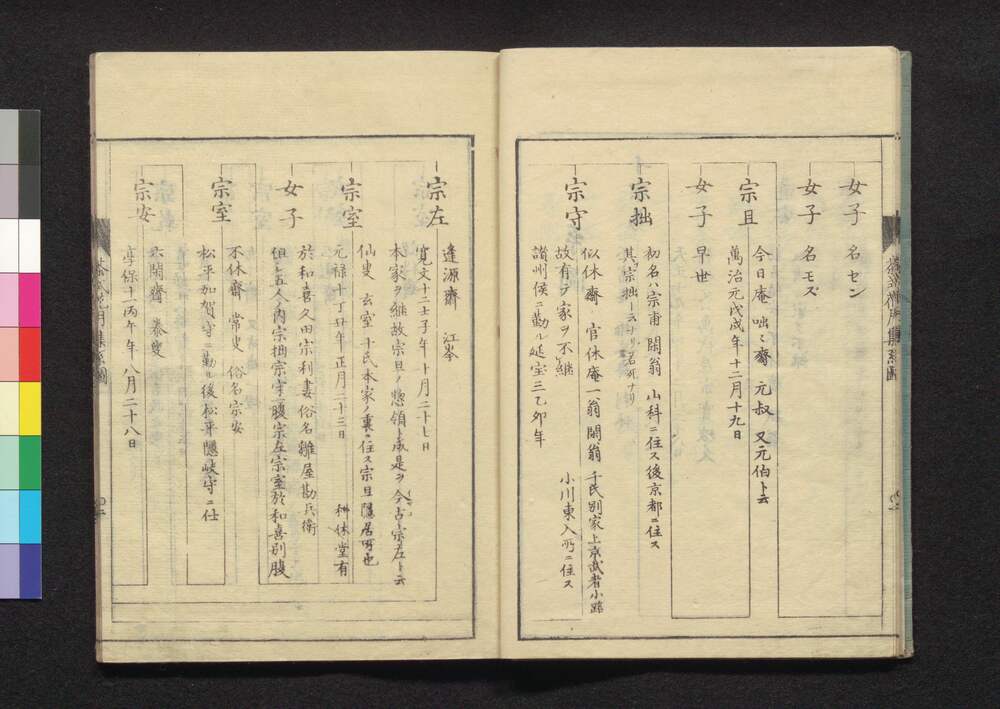 女子 名セン
女子 名モズ
宗旦 今日庵 咄々齋 元叔 又元伯ト云
萬治元戊戌年十二月十九日
女子 早世
宗拙 初名ハ宗甫 閑翁 山科ニ住ス後京都ニ住ス
其宗拙ト云ナリ若死ナリ
宗守 似休齋 官休庵一翁 閑翁 千氏別家上京武者小路
故有テ家ヲ不継 小川東入所ニ住ス
讃州侯ニ勤ル延宝三乙卯年
宗左 逢源齋 江岑
寛文十二壬子年十月二十七日
本家ヲ継故宗旦ノ惣領ト成是ヲ今占宗左ト云
宗室 仙叟 玄室 千氏本家ノ裏ニ住ス宗旦隠居所也
元禄十丁丑年正月二十三日 休堂有
女子 於和喜久田宗利妻俗名雛屋勘兵衛
但シ五人ノ内宗拙宗守一腹宗左宗室於和喜別腹
宗室 不休齋 常叟 俗名宗安
松平加賀守ニ勤ル後松平隠岐守ニ仕
宗安 泰叟
享保十一丙午年八月二十八日